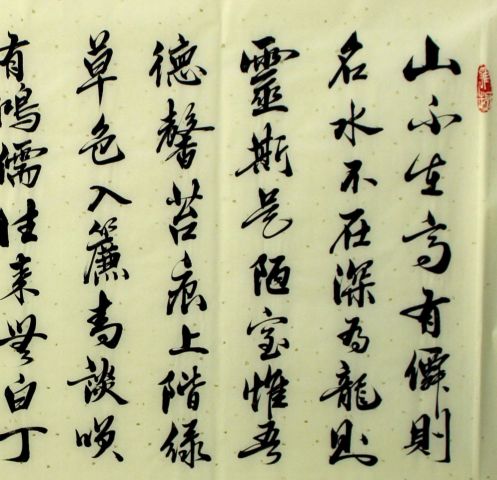 山不在高有僊則
名水不在深有龍則
靈斯是陋室惟吾
德馨苔痕上階綠
草色入簾青談笑
有鴻儒往來無白丁